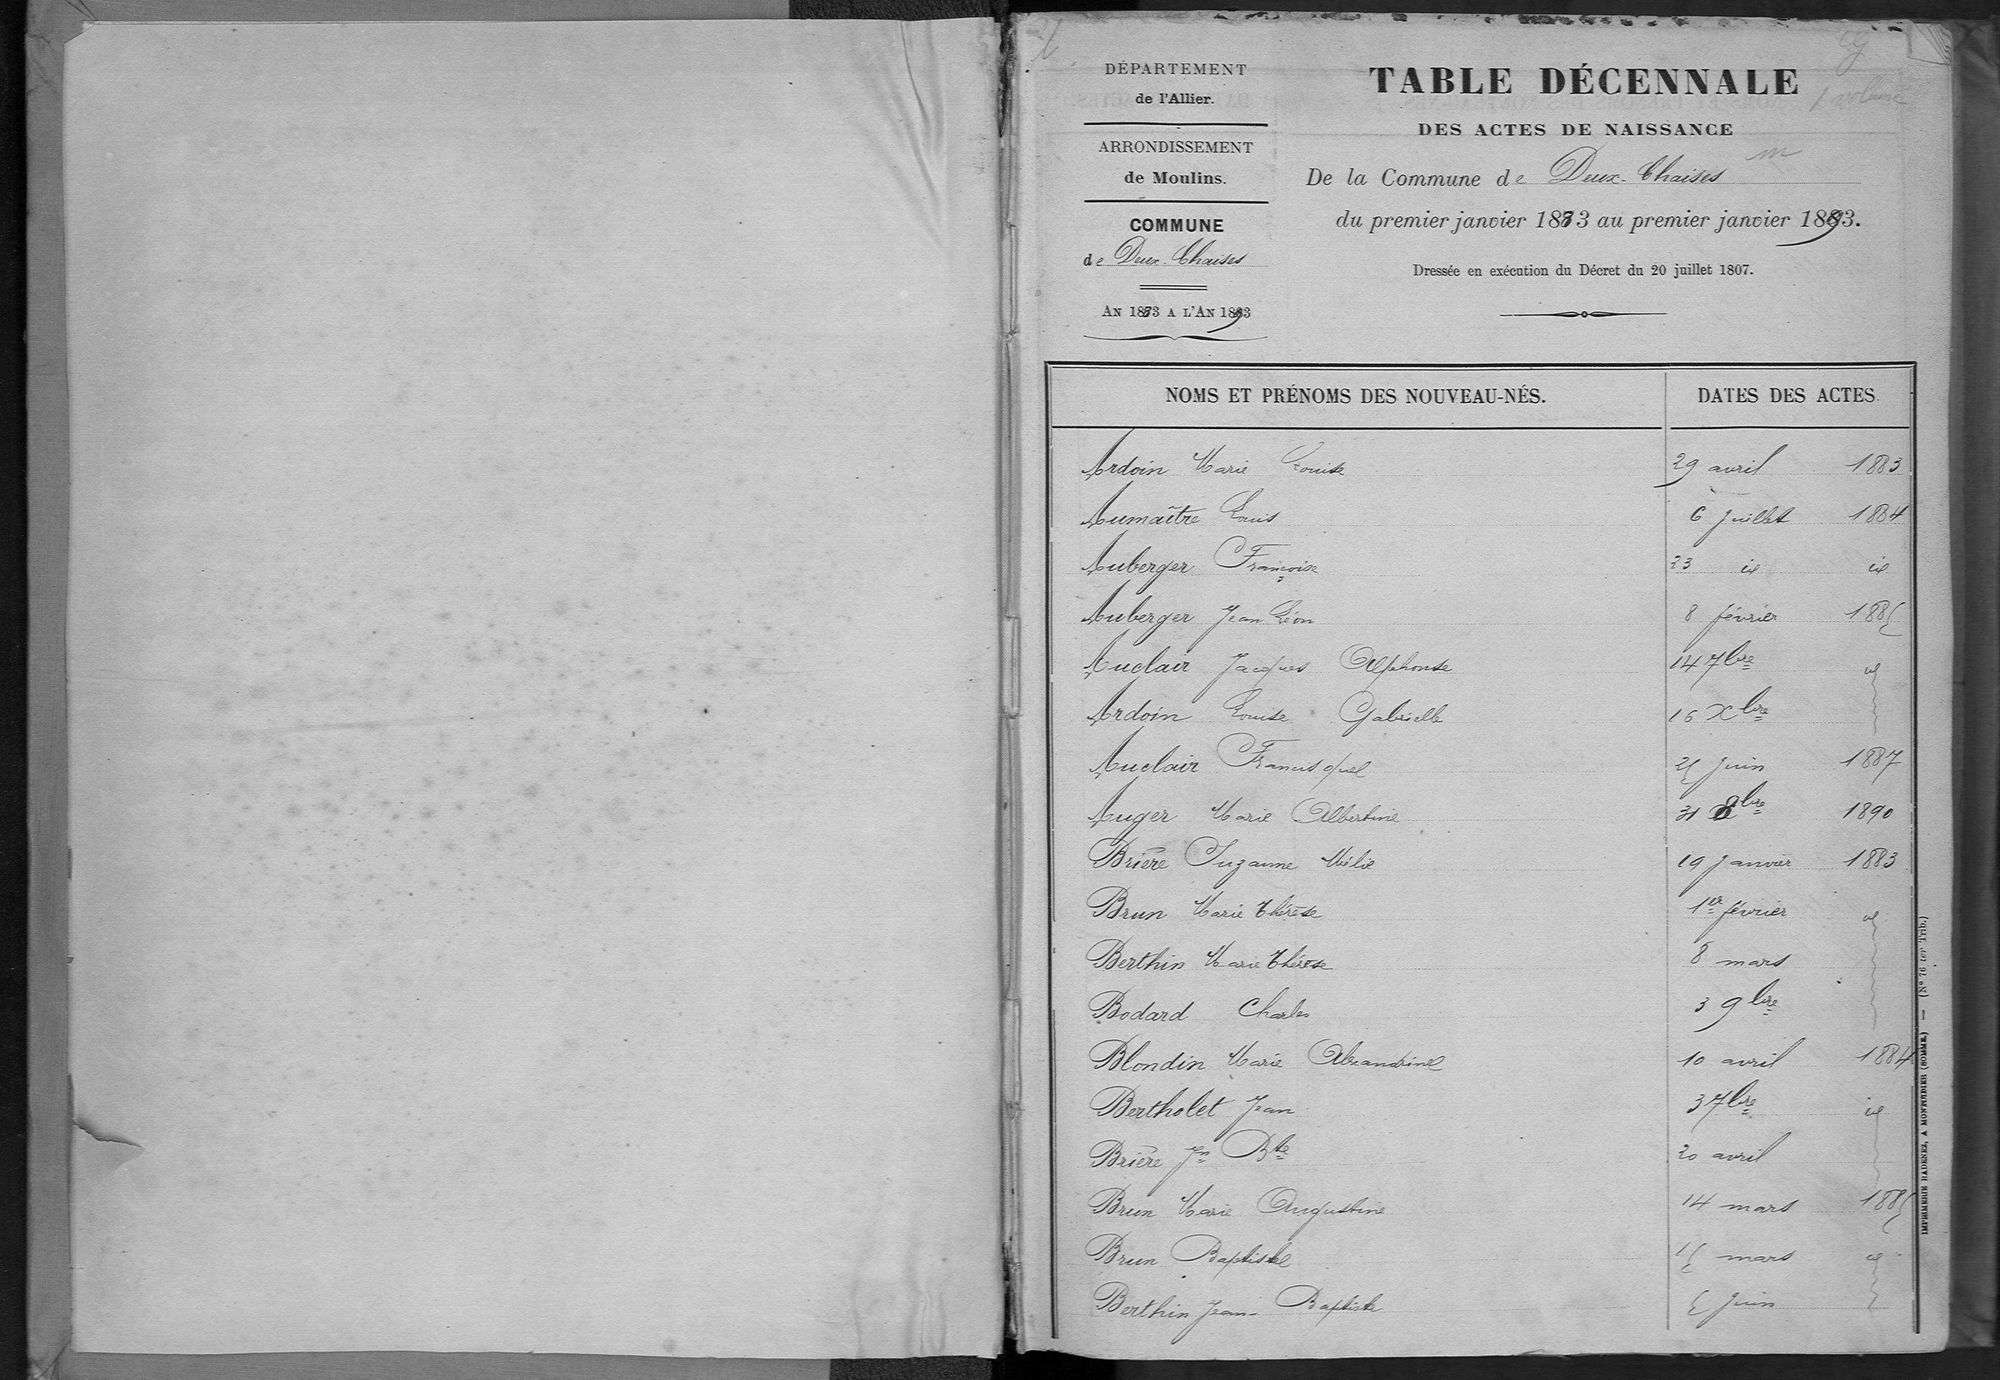 DÉPARTEMENT
de l'Allier.
ARRONDISSEMENT
de Moulins.
COMMUNE
de Deux-Chaises
AN 1883 A L'AN 1893
TABLE DÉCENNALE
1 volume
DES ACTES DE NAISSANCE
De la Commune de Deux-Chaises
du premier janvier 1883 au premier janvier 1893.
Dressée en exécution du Décret du 20 juillet 1807.
NOMS ET PRÉNOMS DES NOUVEAU-NÉS. DATES DES ACTES
Ardoin Marie Louise 29 avril 1883
Aumaître Louis 6 juillet 1884
Auberger Françoise 23 id id
Auberger Jean Léon 8 février 1885
Auclair Jacques Alphonse 14 7bre id
Ardoin Louise Gabrielle 16 Xbre
Auclair Francisque 25 juin 1887
Auger Marie Albertine 31 8bre 1890
Brière Suzanne Mélie 19 janvier 1883
Brun Marie Thérèse 1er février id
Berthin Marie Thérèse 8 mars
Bodard Charles 3 9bre
Blondin Marie Alexandrine 10 avril 1884
Bertholet Jean 3 7bre id
Brière Jn Bte 20 avril
Brun Marie Augustine 14 mars 1885
Brun Baptiste 15 mars id
Berthin Jean-Baptiste 5 juin
IMPRIMERIE RADENEZ, A MONTDIDIER (SOMME) — (N° 76 ter Trib.)